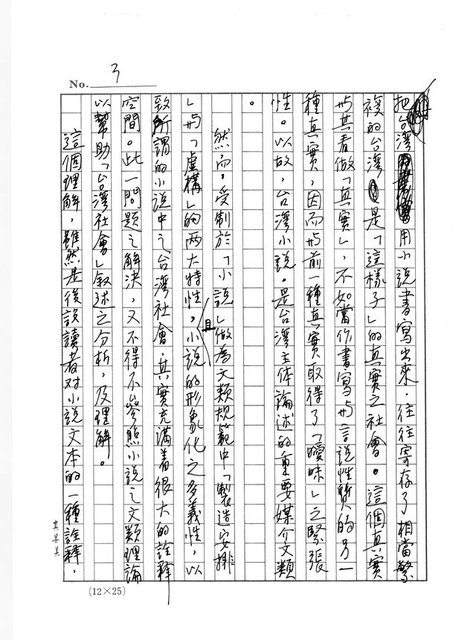 No. 3
把台灣用小說書寫出來,往往寄存了相當繁
複的台灣是「這樣子」的真實之社會。這個真實
與其看做「真實」,不如當作書寫與言說性質的另一
種真實,因而與前一種真實取得了「曖昧」之緊張
性。以故,台灣小說。是台灣主體論述的重要媒介文類
。
然而,受制於「小說」做為文類規範中「製造安排
」與「虛構」的兩大特性,且小說的形象化之多義性,以
致所謂的小說中之台灣社會,其實充滿著很大的詮釋
空間。此一問題之解決,又不得不參照小說之文類理論
以幫助「台灣社會」敘述之分析,及理解。
這個理解,雖然是後設讀者對小說文本的一種詮釋,
(12×25)